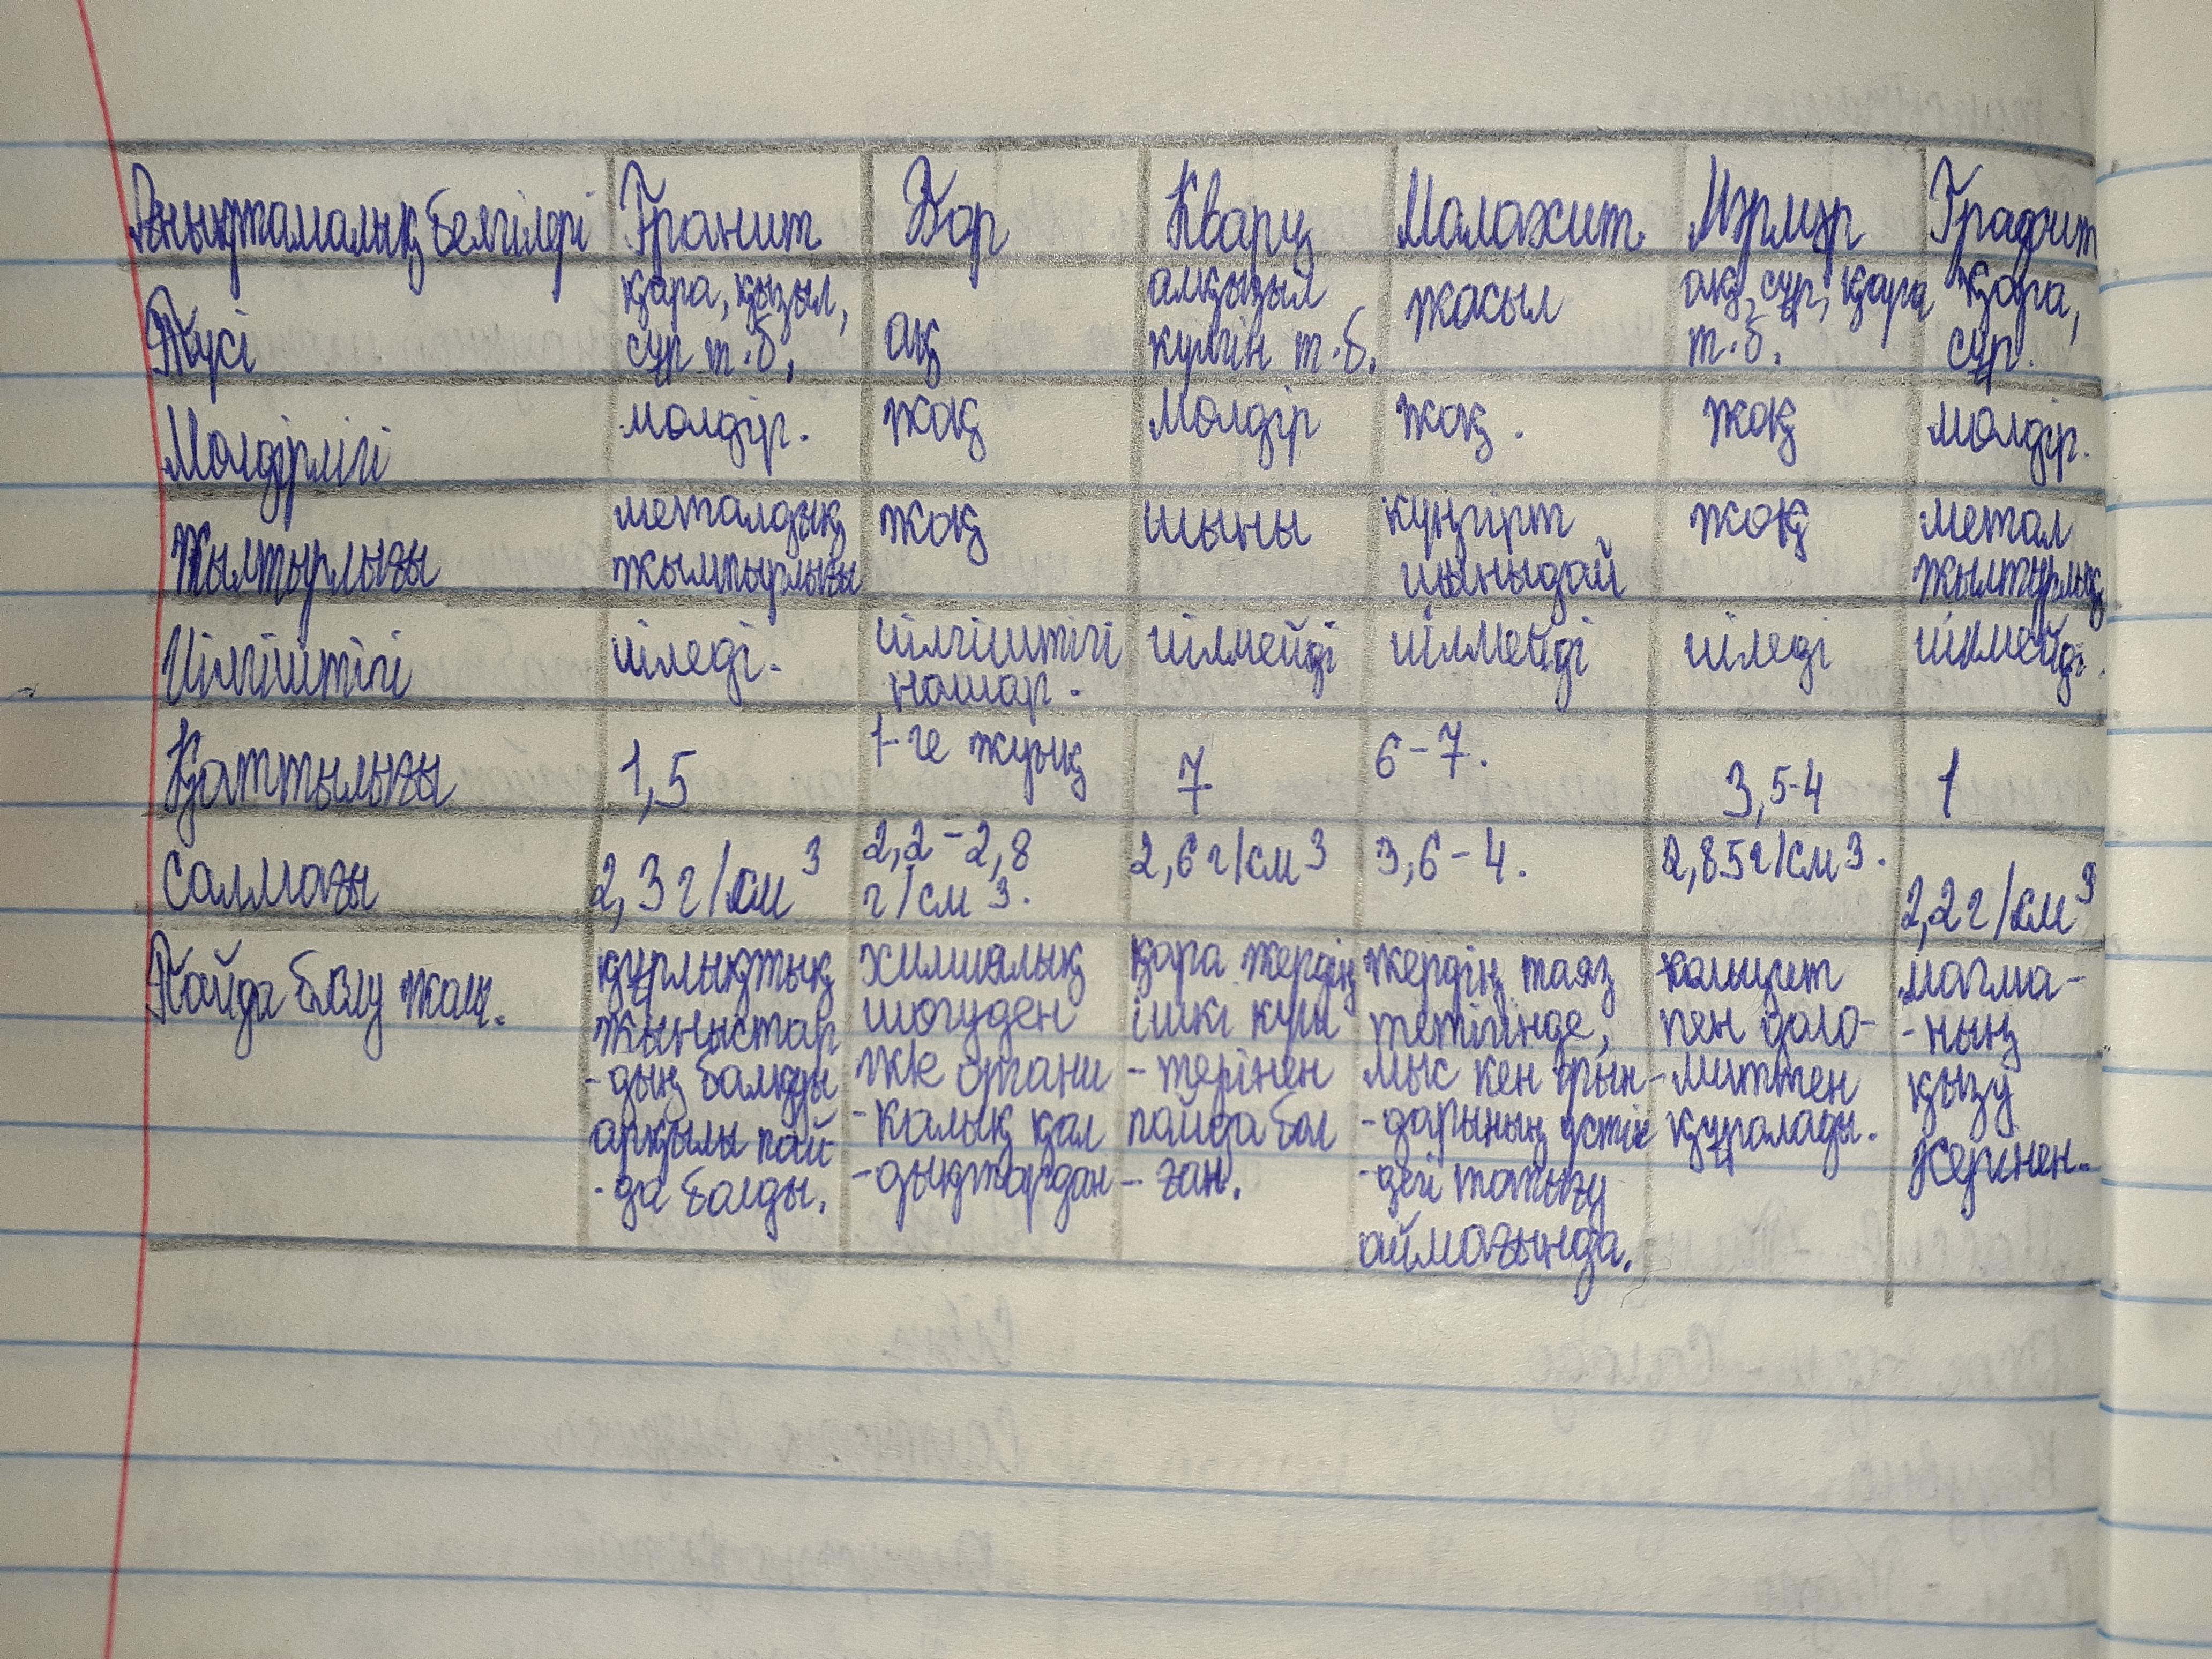 Анықтамалық белгілері Гранит Бор Кварц Малахит Мәрмәр Графит
Түсі қара, қызыл, сұр т.б. ақ алқызыл күлгін т.б. жасыл ақ, сұр, қара т.б. қара, сұр.
Мөлдірлігі мөлдір. жоқ мөлдір жоқ. жоқ мөлдір.
Жылтырлығы металдық жылтырлығы жоқ шыны күңгірт шыныдай жоқ метал жылтырлық
Иілгіштігі иіледі. иілгіштігі нашар. иілмейді иілмейді иіледі иілмейді.
Қаттылығы 1,5 1-ге жуық 7 6-7. 3,5-4 1
Салмағы 2,3 г/см³ 2,2-2,8 г/см³. 2,6 г/см³ 3,6-4. 2,85 г/см³. 2,2 г/см³
Пайда болу жағ.
құрлықтық
жыныстар
-дың балқуы
арқылы пай
-да болды.
химиялық
шөгуден
және органи
-калық қал
-дықтардан
қара жердің
ішкі күш
-терінен
пайда бол
-ған.
жердің таяз
тетігінде,
мыс кен орын-
-дарының үстін
-дегі тотығу
аймағында.
кальцит
пен доло-
-миттен
құралады.
магма-
-ның
қызу
жерінен.